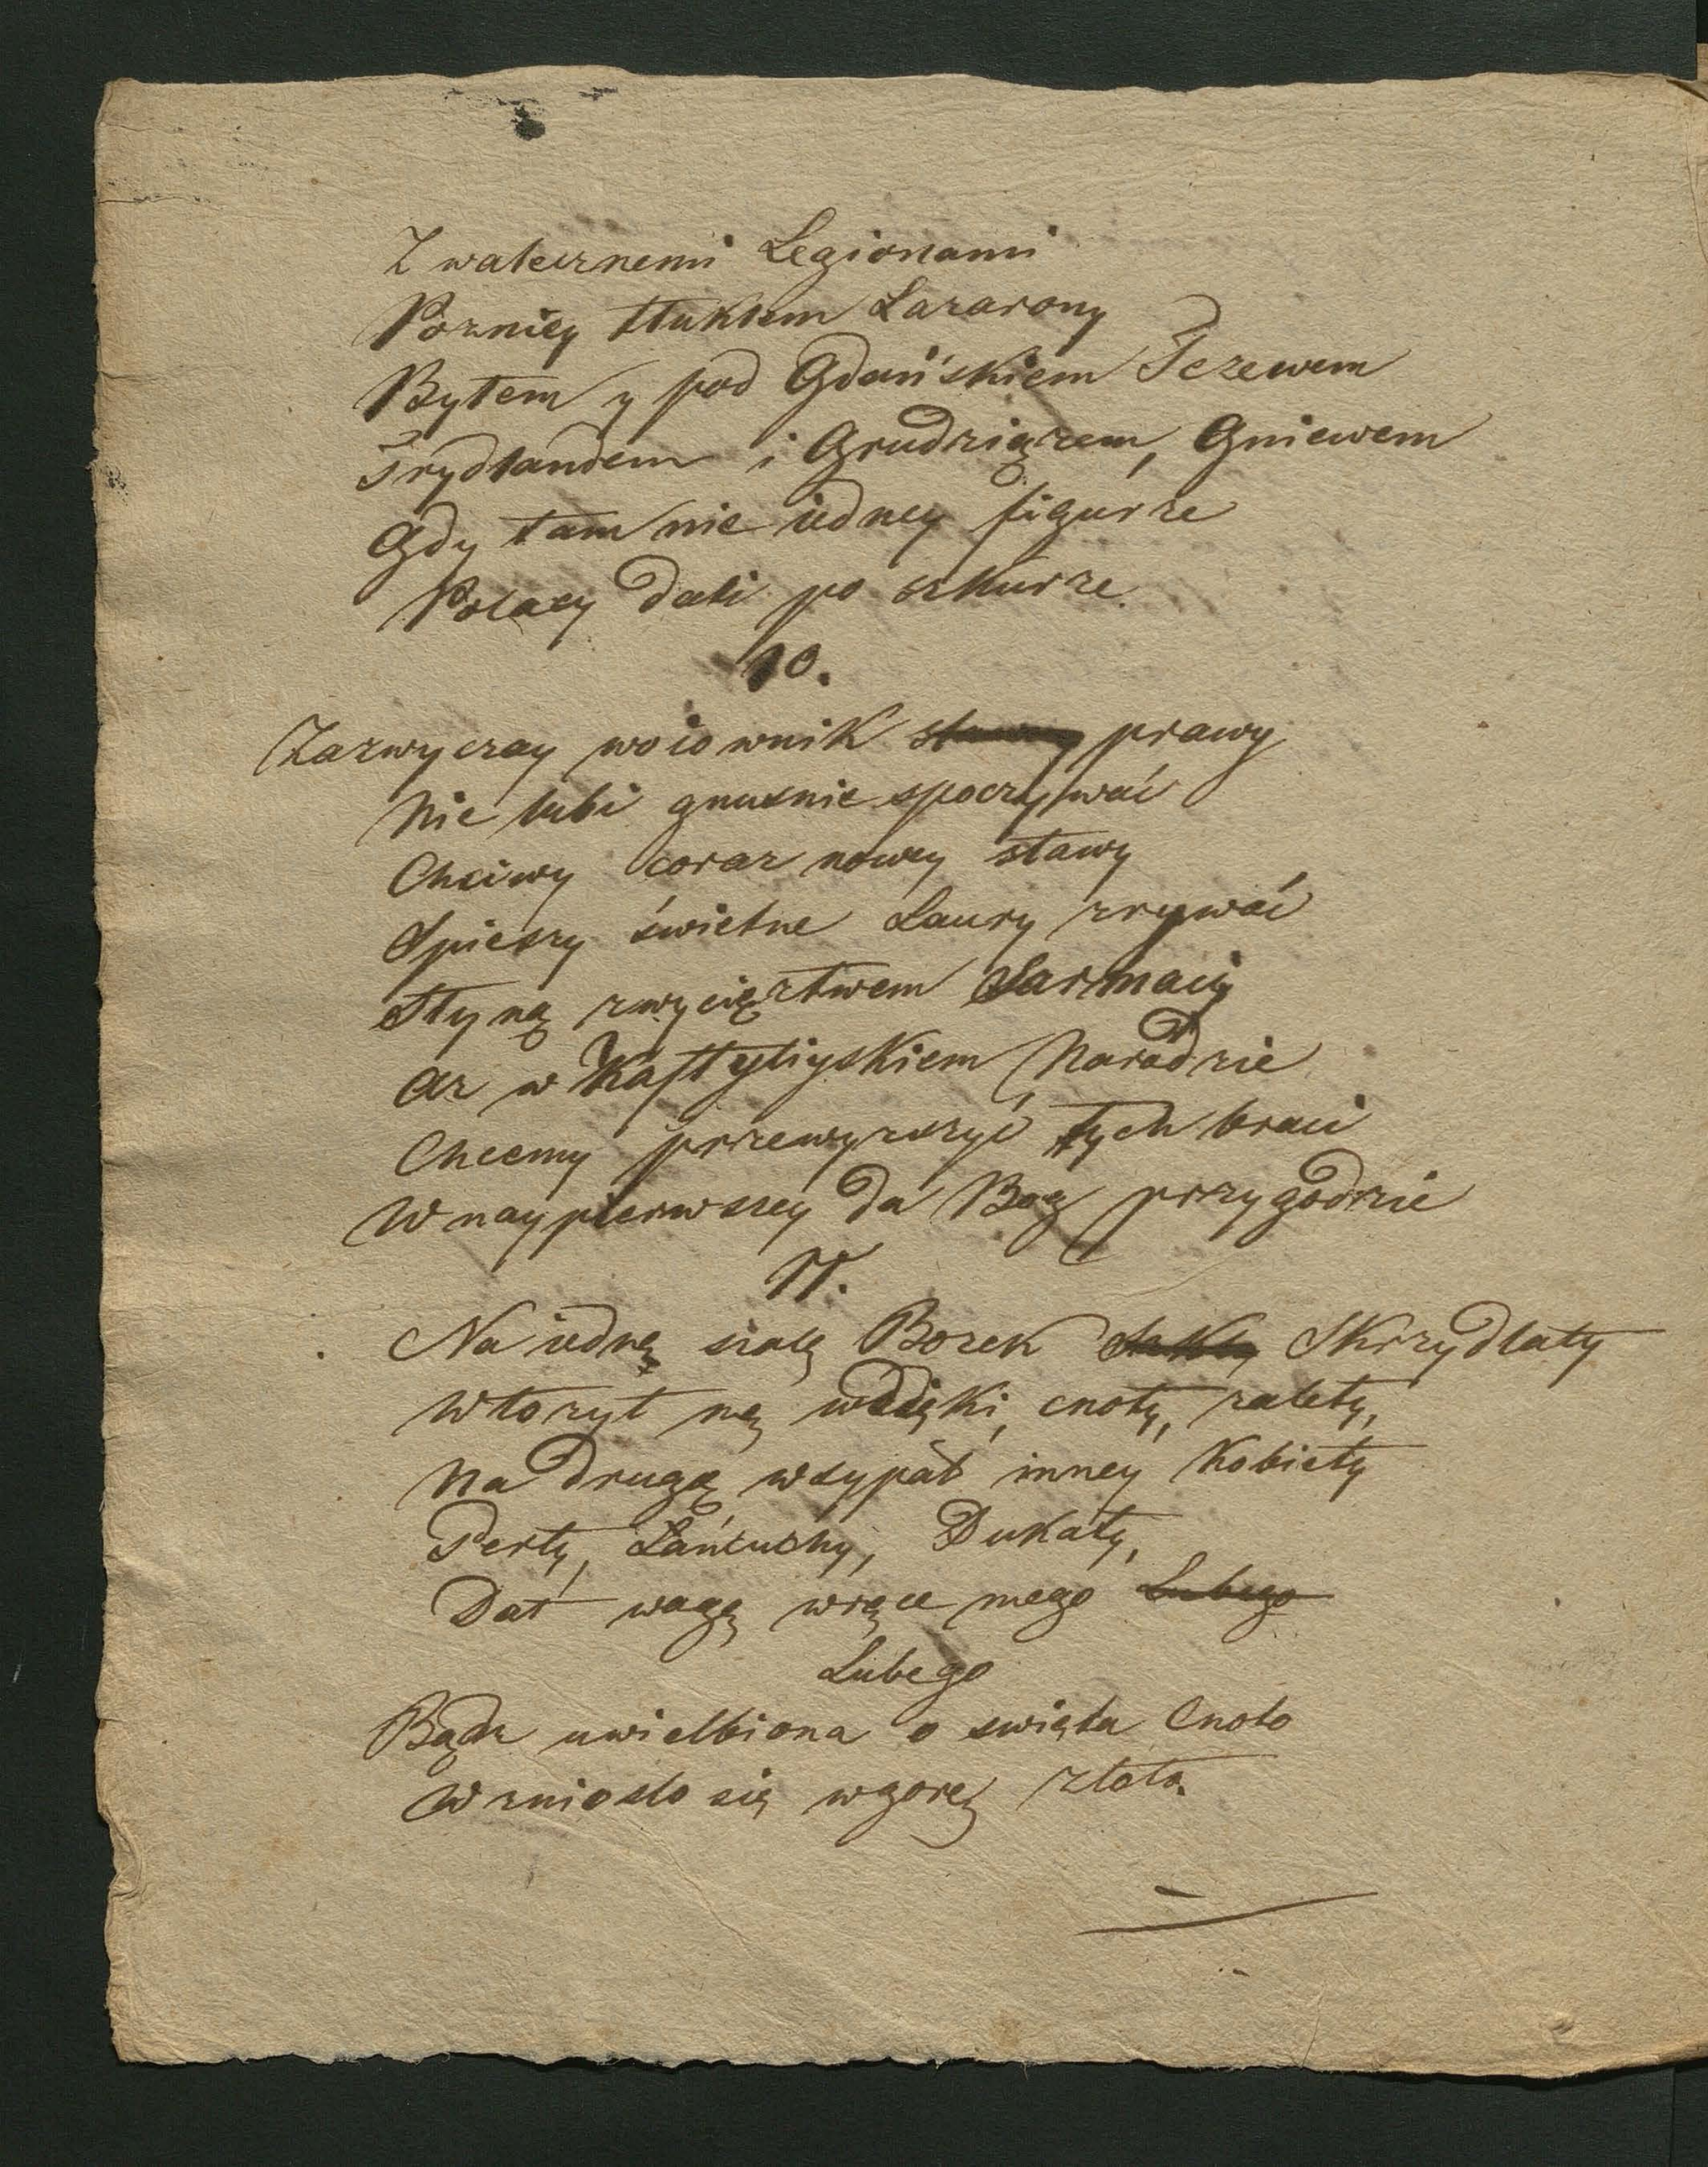 Z walecznemi Legionami
Pozniey tłukłem Lazarony
Byłem y pod Gdańskiem Tczewem
Frydlandem i Grudziązem, Gniewem
Gdy tam nie iedney figurze
Polacy dali po szkurze.
10.
Zazwyczay woiownik sławny prawy
Nie lubi gnusnie spoczywać
Chciwy coraz nowey sławy
Spieszy świetne Laury zrywać
Słyną zwycięztwem Sarmacy
Az w Kastyliyskiem Narodzie
Chcemy przewyzszyć tych braci
W naypierwszey da Bog przygodzie
11.
Na iedną szalę Bozek Skrzydlaty
Włozył nią wdzięki, cnoty, zalety,
Na drugą wsypał inney Kobiety
Perły, Łańcuchy, Dukaty,
Dał wagę wręce mego Lubego
Lubego
Bądz uwielbiona o swięta Cnoto
Wzniosło się wgorę złoto.